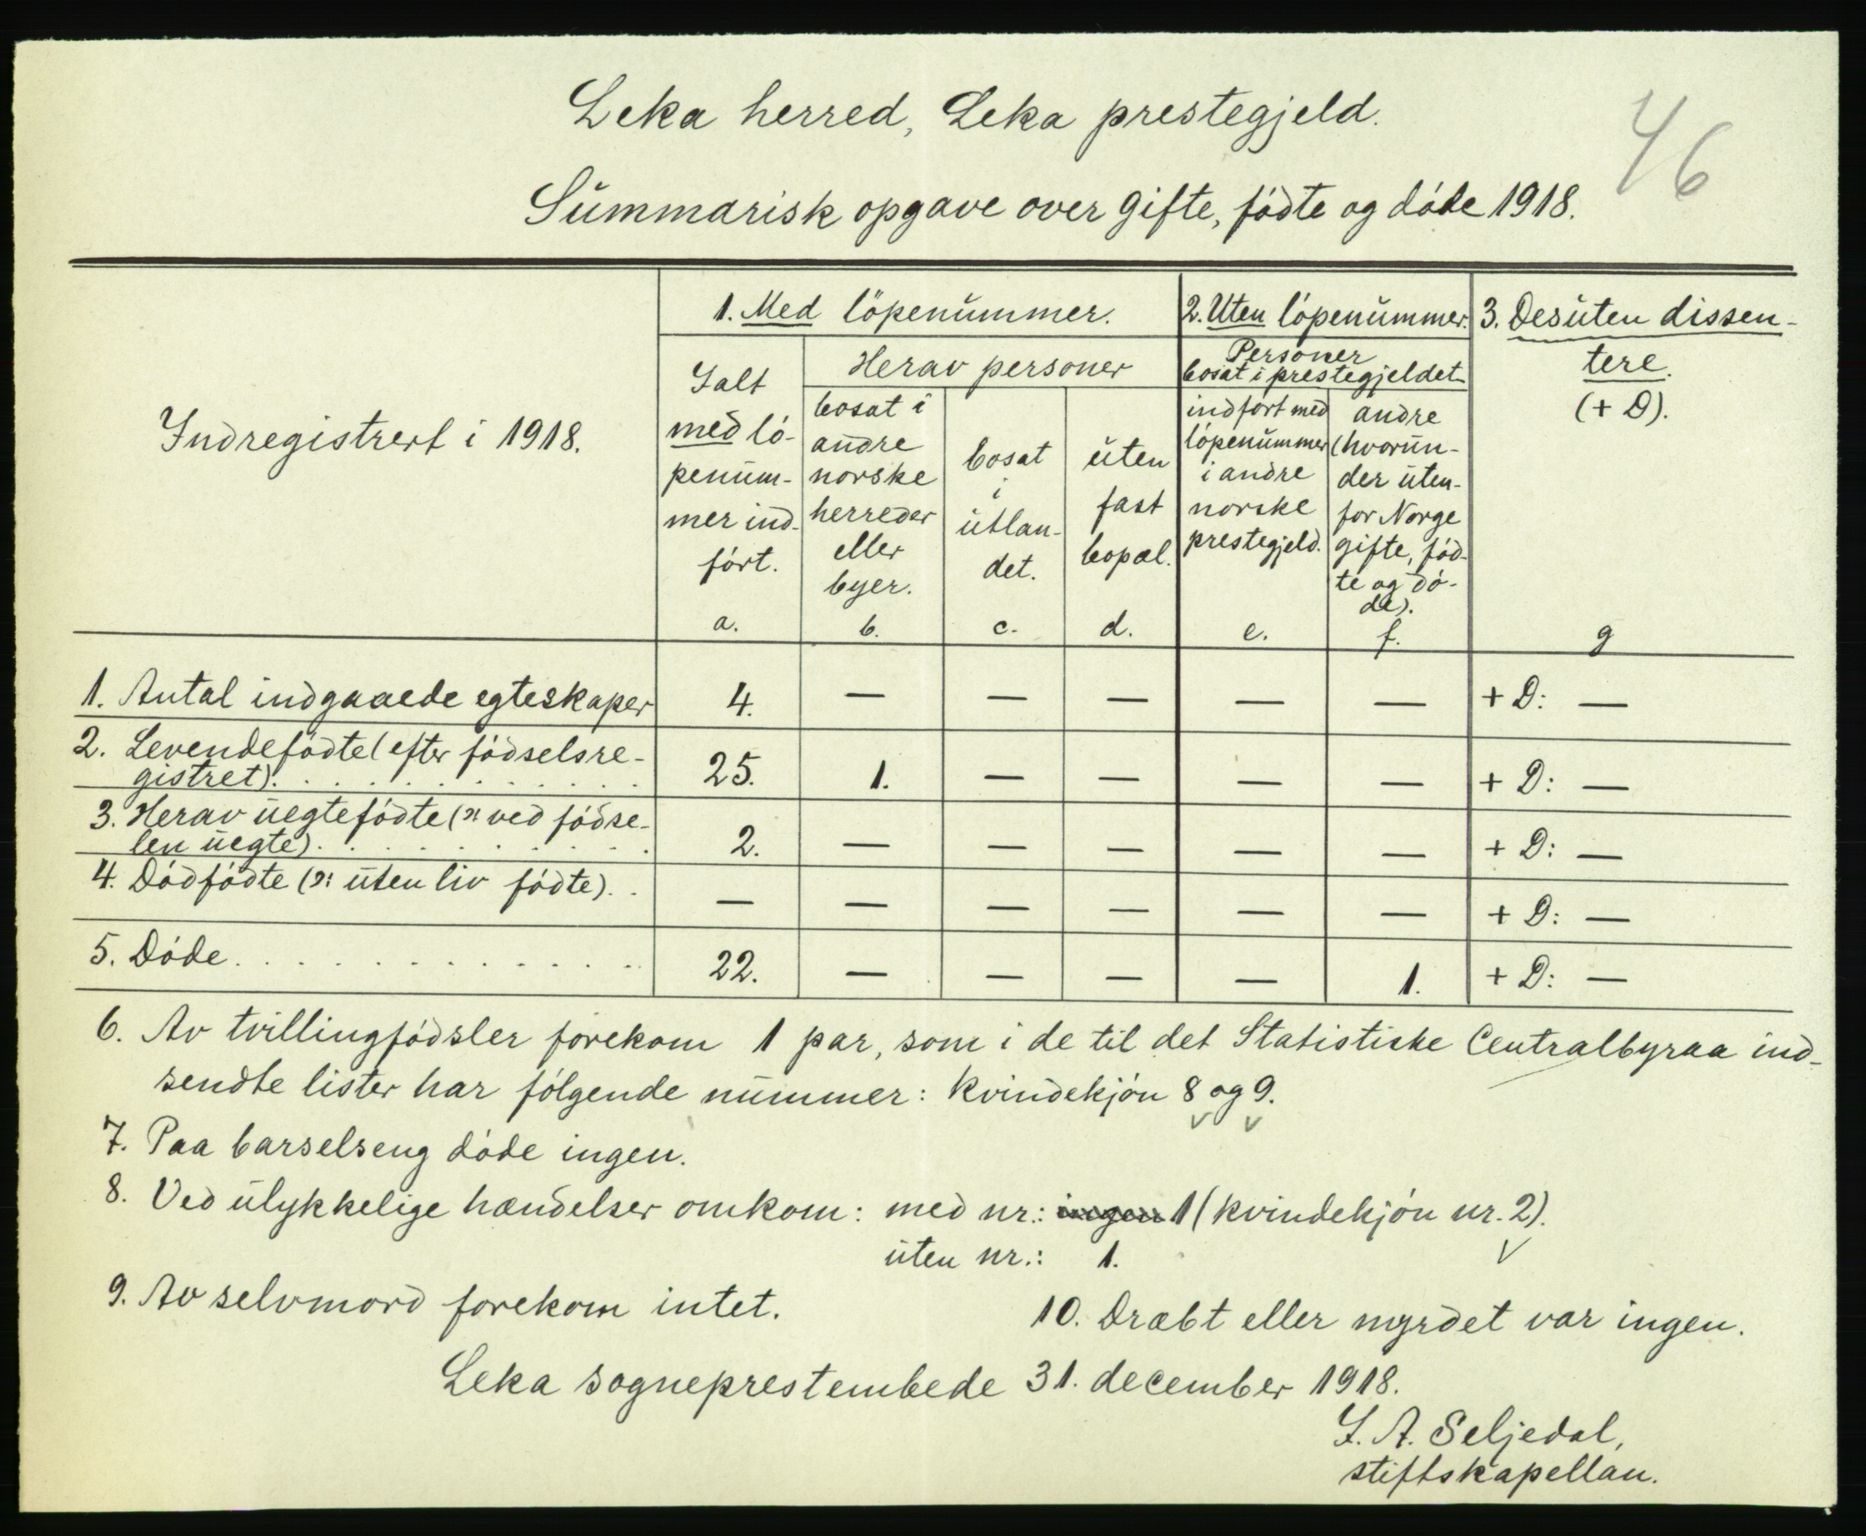 Leka herred, Leka prestegjeld.
46
Summarisk opgave over gifte, födte og döde 1918.
Indregistrert i 1918.
1. Med löpenummer.
2. Uten löpenummer.
3. Desuten dissen-
tere.
(+ D).
Ialt
med lö-
penum-
mer ind-
fört.
a.
Herav personer
bosat i
andre
norske
herreder
eller
byer.
b.
bosat
i
utlan-
det.
c.
uten
fast
bopæl.
d.
Personer
bosat i prestegjeldet
indfört med
löpenummer
i andre
norske
prestegjeld.
e.
andre
(hvorun-
der uten-
for Norge
gifte, fød-
te og dö-
de).
f.
g
1. Antal indgaaede egteskaper 4. — — — — — + D: —
2. Levendefödte (efter födselsre-
gistret). . . . . . . . . . . 25. 1. — — — — + D: —
3. Herav uegtefödte (ɔ: ved födse-
len uegte). . . . . . . . . . 2. — — — — — + D: —
4. Dödfödte (ɔ: uten liv födte). . — — — — — — + D: —
5. Döde. . . . . . . . . . . . 22. — — — — 1. + D: —
6. Av tvillingfödsler forekom 1 par, som i de til det Statistiske Centralbyraa ind-
sendte lister har fölgende nummer: kvindekjön 8 og 9.
7. Paa barselseng döde ingen.
8. Ved ulykkelige hændelser omkom: med nr.: ingen 1 (kvindekjön nr. 2).
uten nr.: 1.
9. Av selvmord forekom intet.
10. Dræbt eller myrdet var ingen.
Leka sogneprestembede 31. december 1918.
I. A. Seljedal,
stiftskapellan.